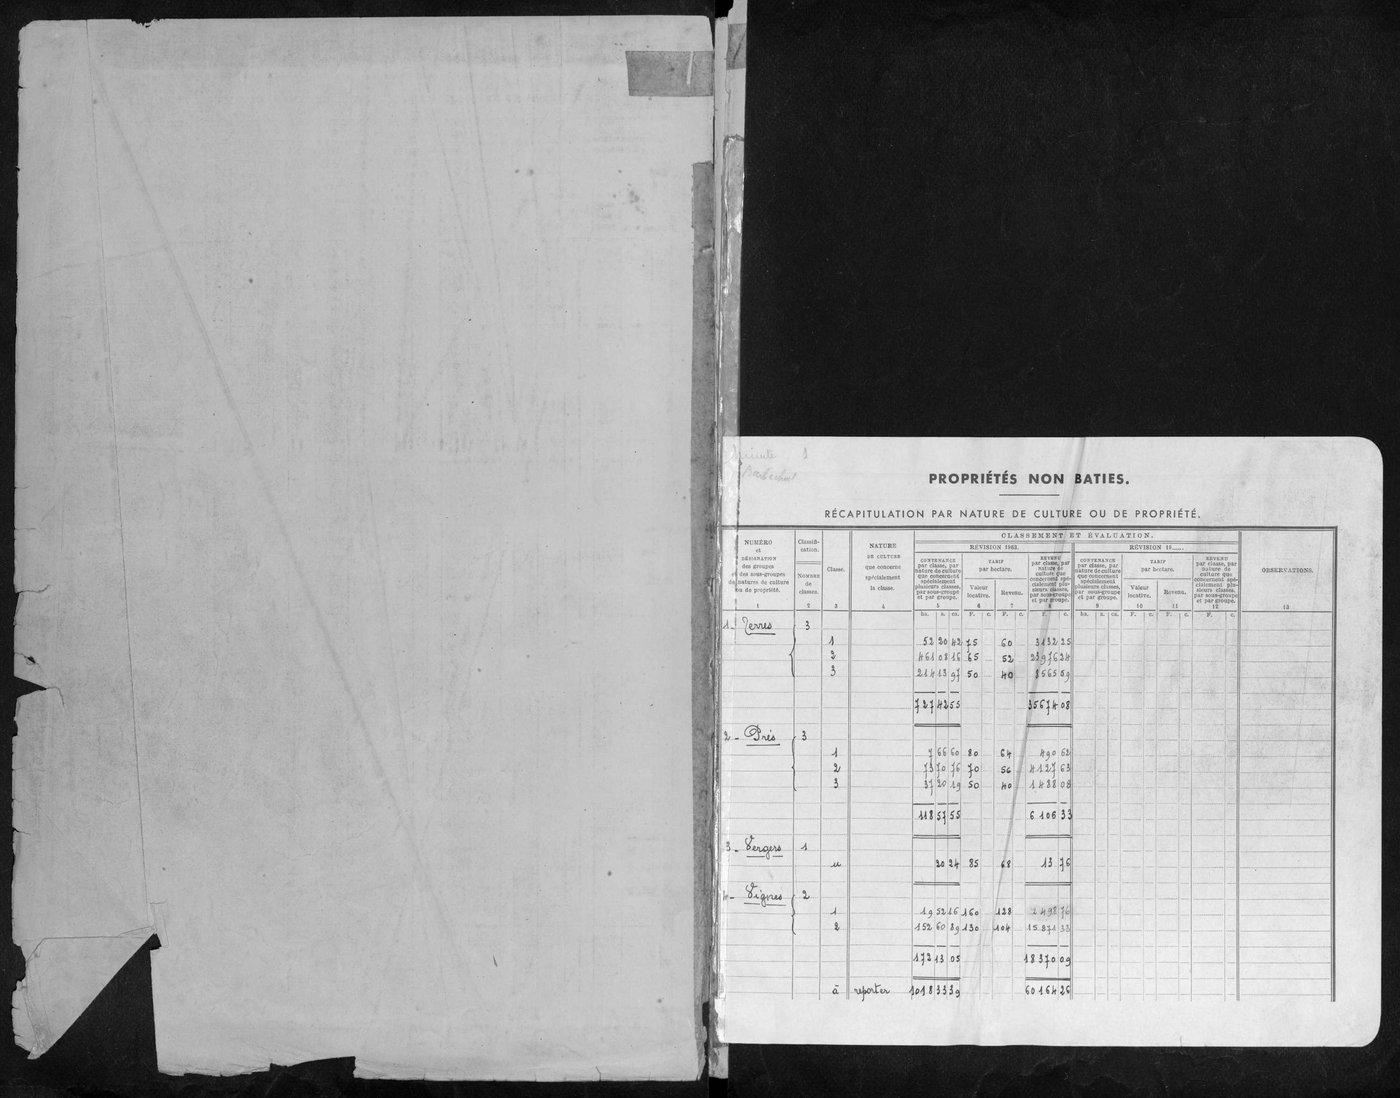 minute 1
PROPRIÉTÉS NON BATIES.
RÉCAPITULATION PAR NATURE DE CULTURE OU DE PROPRIÉTÉ.
NUMÉRO et DÉSIGNATION des groupes et des sous-groupes de natures de culture ou de propriété. 1
Classification. NOMBRE de classes. 2
Classe. 3
NATURE DE CULTURE que concerne spécialement la classe. 4
CLASSEMENT ET ÉVALUATION.
REVISION 1963.
CONTENANCE par classe, par nature de culture que concernent spécialement plusieurs classes, par sous-groupe et par groupe. 5
TARIF par hectare.
Valeur locative. 6
Revenu. 7
REVENU par classe, par nature de culture que concernent spécialement plusieurs classes, par sous-groupe et par groupe. 8
REVISION 19
CONTENANCE par classe, par nature de culture que concernent spécialement plusieurs classes, par sous-groupe et par groupe. 9
TARIF par hectare.
Valeur locative. 10
Revenu. 11
REVENU par classe, par nature de culture que concernent spécialement plusieurs classes, par sous-groupe et par groupe. 12
OBSERVATIONS. 13
ha. a. ca. F. c. F. c. F. c. ha. a. ca. F. c. F. c. F. c.
1 - Terres 3
1 52 20 42 75 60 3132 25
2 461 08 16 65 52 23976 24
3 214 13 97 50 40 8565 59
727 42 55 35674 08
2 - Prés 3
1 7 66 60 80 64 490 62
2 73 70 76 70 56 4127 63
3 37 20 19 50 40 1488 08
118 57 55 6106 33
3 - Vergers 1
u 20 24 85 68 13 76
4 - Vignes 2
1 19 52 16 160 128 2498 76
2 152 60 89 130 104 15871 33
172 13 05 18370 09
à reporter 1018 33 39 60164 26